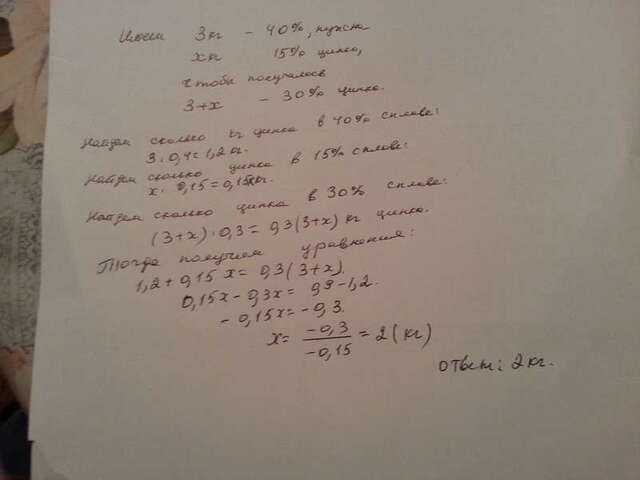 Имеем 3кг - 40%, нужна
x кг 15% цинка,
чтобы получалось
3+x - 30% цинка.
Найдем сколько кг цинка в 40% сплаве:
3 · 0,4 = 1,2 кг.
Найдем сколько цинка в 15% сплаве:
x · 0,15 = 0,15x кг.
Найдем сколько цинка в 30% сплаве:
(3+x) · 0,3 = 0,3(3+x) кг цинка.
Тогда получаем уравнения:
1,2 + 0,15x = 0,3(3+x).
0,15x - 0,3x = 0,9 - 1,2.
- 0,15x = - 0,3.
x = -0,3 / -0,15 = 2 (кг)
Ответ: 2кг.